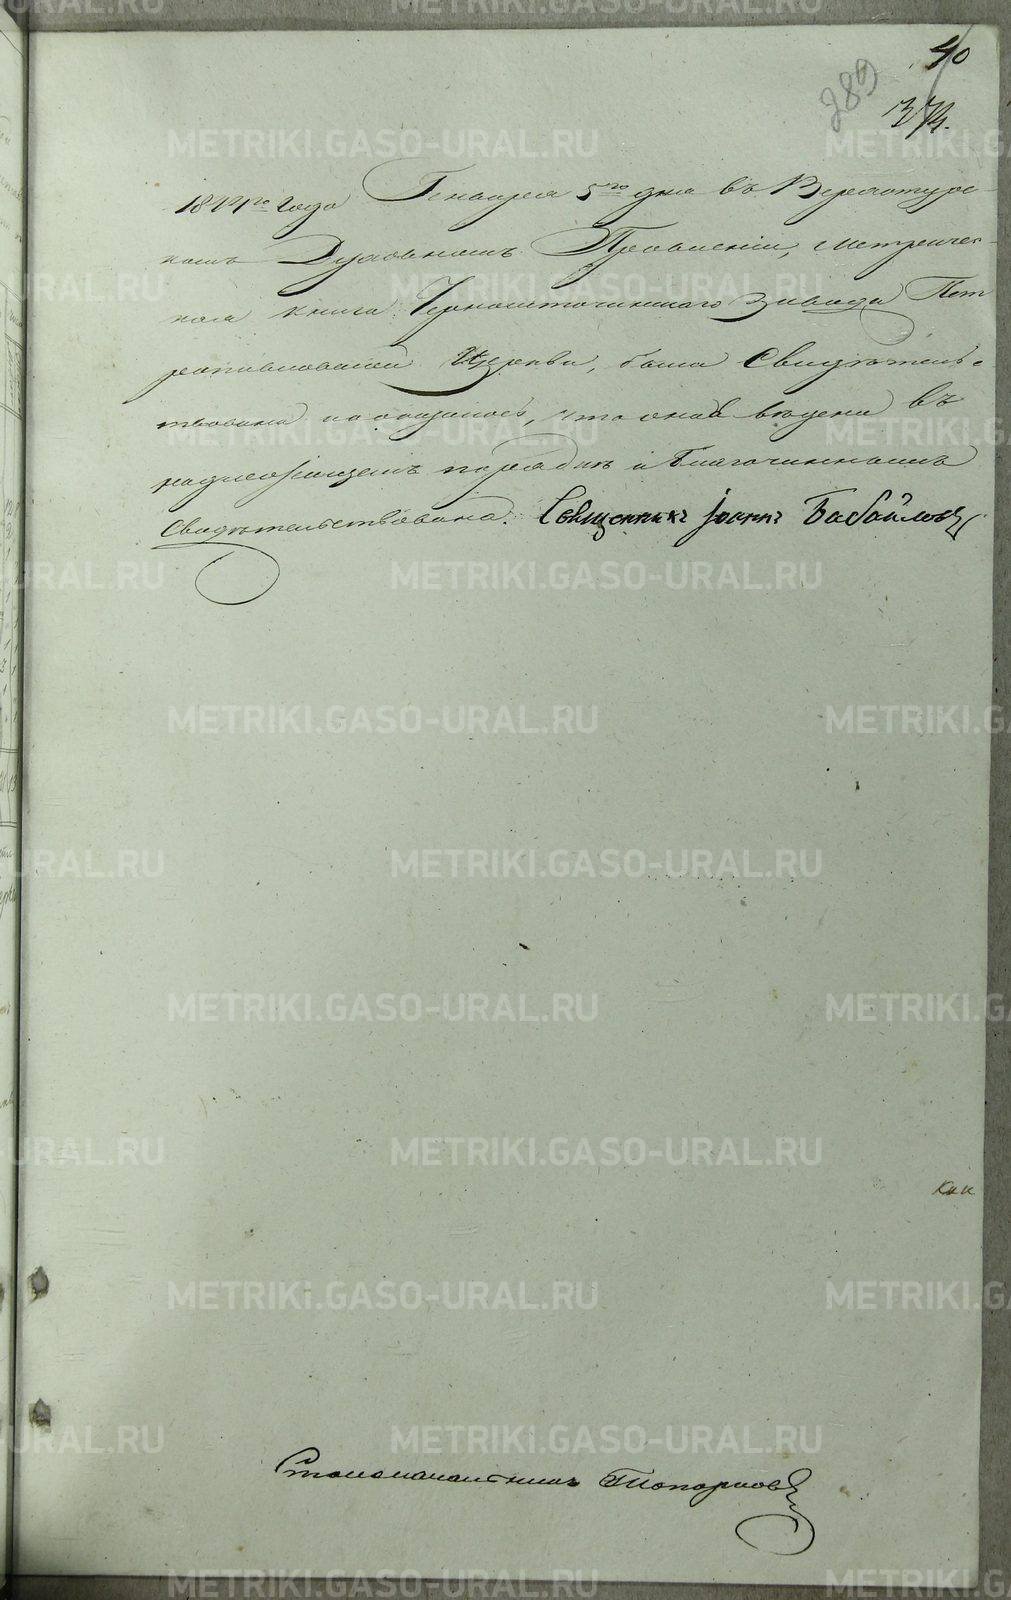 40
289
373.
1844го года Генваря 5го дня въ Верхотурс-
комъ Духовномъ Правленіи, метричес-
кая книга Черноисточинскаго завода Пет
ропавловской Церкви, была свидѣтель-
ствована и оказалось, что оная ведена въ
надлежащемъ порядкѣ и Благочиннымъ
свидѣтельствована. Священникъ Іоаннъ Бабайловъ
Столоначальникъ Топорковъ
METRIKI.GASO-URAL.RU